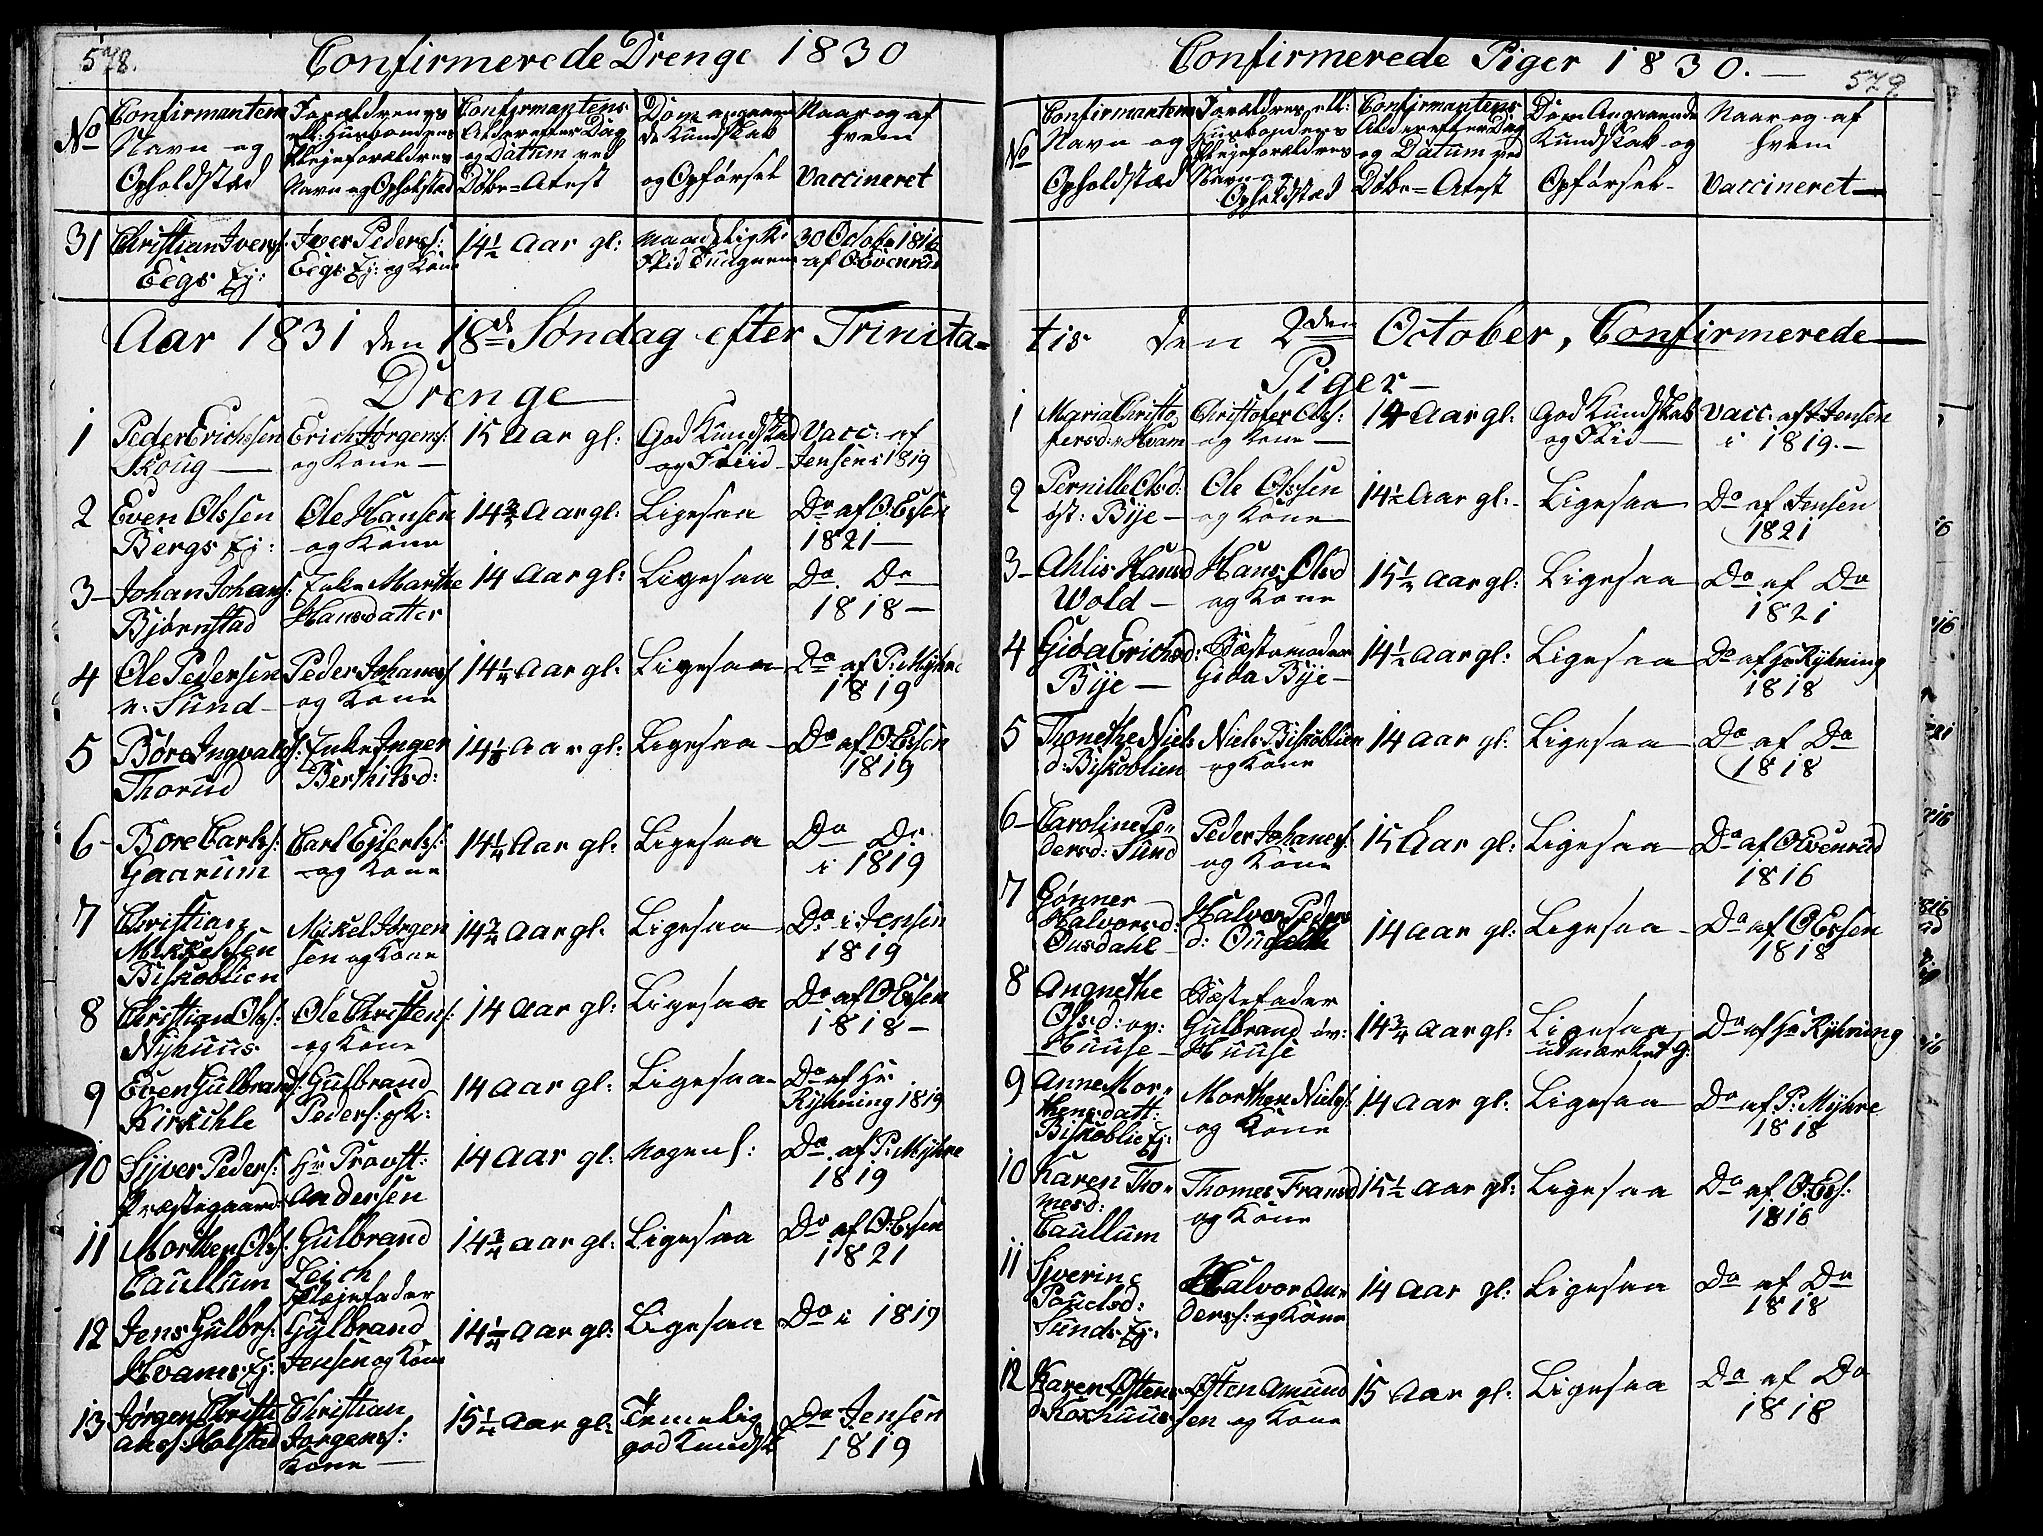 578.
Confirmerede Drenge 1830
No
Confirmantens
Navn og
Opholdstæd
Forældrenes
ell: Husbondens
Plejeforældres
Navn og Opholdstæd
Confirmantens
Alder efter Dag
og Dattum ved
Døbe=Atest
Dom angaaen
de Kundskab
og Opførsel
Naar og af
hvem
Vaccineret
31
Christian Ivers:
Eegs Ej:
Iver Peders:
Eegs Ej: og Kone
14½ Aar gl:
30 Octobr 1816
af O: Evenrud
Aar 1831 den 18de Søndag efter Trinita=
Drenge
1
Peder Erichssen
Skoug
Erich Jørgens:
og Kone
15 Aar gl:
God Kundskab
og Fliid
Vacc: af
Jensen i 1819
2
Even Olssen
Bergs Ej:
Ole Hansen
og Kone
14¾ Aar gl:
Ligesaa
Do af O: Essen
1821
3
Johan Johans:
Bjørnstad
Enke Marthe
Hansdatter
14 Aar gl:
Ligesaa
Do Do
1818
4
Ole Pedersen
n: Sund
Peder Johaness
og Kone
14¼ Aar gl:
Ligesaa
Do af P: Myhre
1819
5
Børe Ingvalds:
Thorud
Enke Inger
Berthilsd:
14½ Aar gl:
Ligesaa
Do af O: Essen
1819
6
Bore Carls:
Gaarum
Carl Ejlerts:
og Kone
14¼ Aar gl:
Ligesaa
Do Do
i 1819
7
Christian
Mikkelsen
Biskoblien
Mickel Jørgen
sen og Kone
14¾ Aar gl:
Ligesaa
Do i Jensen
1819
8
Christian Ols:
Nyhuus
Ole Christens:
og Kone
14 Aar gl:
Ligesaa
Do af O: Essen
1818
9
Even Gulbrands:
Kirkihle
Gulbrand
Peders: og K:
14 Aar gl:
Ligesaa
Do af Hr
Ryhning 1819
10
Syver Peders:
Præstegaard:
Hr Provst:
Andersen
14 Aar gl:
Nogenl:
Do af P: Myhre
1819
11
Morthen Ols:
Caullum
Gulbrand
Leich
Plejefader
14¾ Aar gl:
Ligesaa
Do af O: Essen
1821
12
Jens Gulbrs:
Hvams Ej:
Gulbrand
Jensen og Kone
14¼ Aar gl:
Ligesaa
Do i 1819
13
Jørgen Christi
ans: Holstad
Christian
Jørgens:
Kone
15¼ Aar gl:
Temelig
god Kundsk
Do Jensen
1819
Confirmerede Piger 1830.
579
No
Confirmantens
Navn og
Opholdstæd
Forældres ell:
Husbondens
Plejeforældres
Navn og
Opholdstæd
Confirmantens
Alder efter Dag
og Datum ved
Døbe=Atest
Dom Angaaende
Kundskab og
Opførsel
Naar og af
hvem
Vaccineret
tis den 2den October, Confirmerede
Piger
1
Maria Christo
fersd: Hvam
Christofer Ols:
og Kone
14 Aar gl:
God Kundskab
og Flid
Vacc: af Jensen
i 1819.
2
Pernille Olsd:
øst: Bije
Ole Olssen
og Kone
14½ Aar gl:
Ligesaa
Do af Jensen
1821
3
Ahlis Hansd
Wold
Hans Olsd
og Kone
15½ Aar gl:
Ligesaa
Do af Do
1821
4
Gida Erichsd:
Bije
Bæstemoder
Gida Bije
14½ Aar gl:
Ligesaa
Do af Hr Ryhning
1818
5
Thonethe Niels
d: Biskoblien
Niels Biskoblien
og Kone
14 Aar gl:
Ligesaa
Do af Do
1818
6
Caroline Pe
dersd: Sund
Peder Johaness:
og Kone
15 Aar gl:
Ligesaa
Do af O: Evenrud
1816
7
Gønner
Halvorsd:
Ousdahl
Halvor Peders
14 Aar gl:
Ligesaa
Do af O: Essen
1818
8
Angnethe
Olsd: øv:
Huuse
Bæstefader
Gulbrand øv:
Huuse
14¾ Aar gl:
Ligesaa
udmærket G:
Do af Hr Ryhning
9
Anne Mor
thensdatt:
Biskoblie Ej:
Morthen Niels:
og Kone
14 Aar gl:
Ligesaa
Do af P: Myhre
1818
10
Karen Tho
mesd:
Caullum
Thomes Fransd
og Kone
15½ Aar gl:
Ligesaa
Do af O: Ess:
1816
11
Syverine
Paulsd:
Sunds Ej:
Halvor An
derss: og Kone
14 Aar gl:
Ligesaa
Do af Do
1818
12
Karen Østens
d: Korhuus
Østen Amund
sen og Kone
15 Aar gl:
Ligesaa
Do af Do
1818